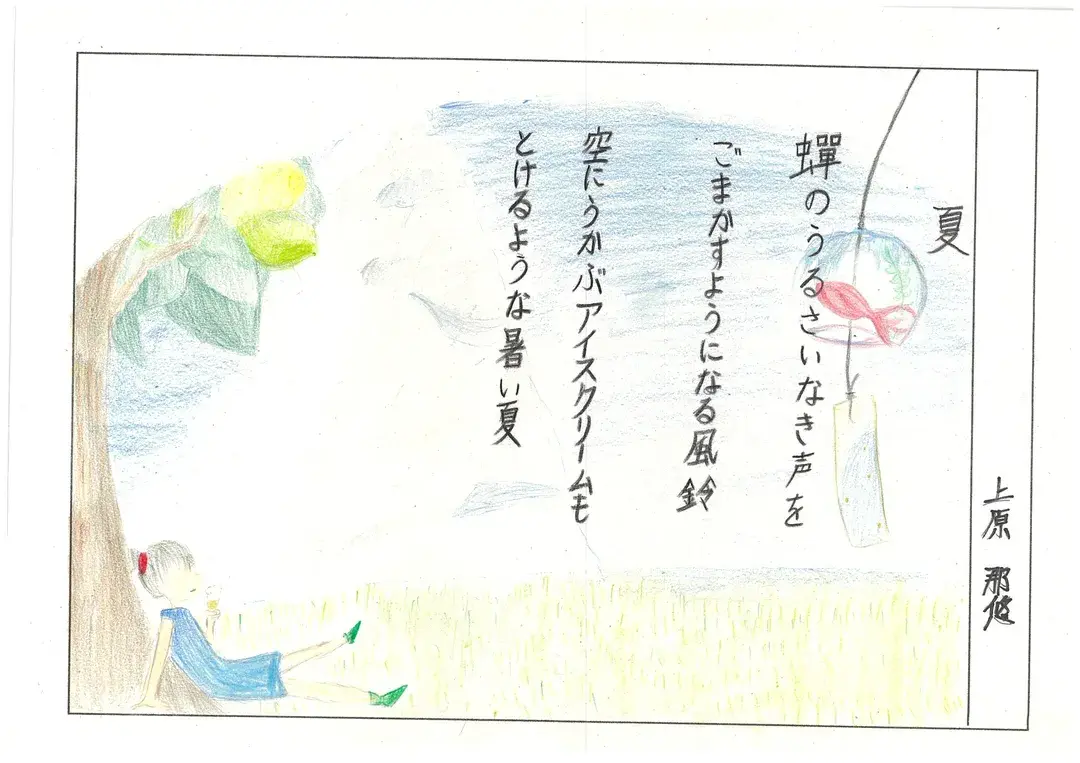 夏
蟬のうるさいなき声を
ごまかすようになる風鈴
空にうかぶアイスクリームも
とけるような暑い夏
上原 那悠